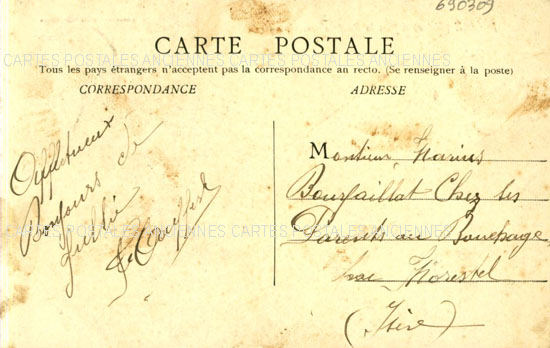 690309
CARTE POSTALE
CARTES POSTALES ANCIENNES CARTES POSTALES ANCIENNES CARTES POSTALES ANCIENNES
Tous les pays étrangers n'acceptent pas la correspondance au recto. (Se renseigner à la poste)
CORRESPONDANCE
ADRESSE
Affectueux
Bonjours de
Monsieur Marius
Bourfaillat Chez ses
Parents au Bouchage
Morestel
(Isère)